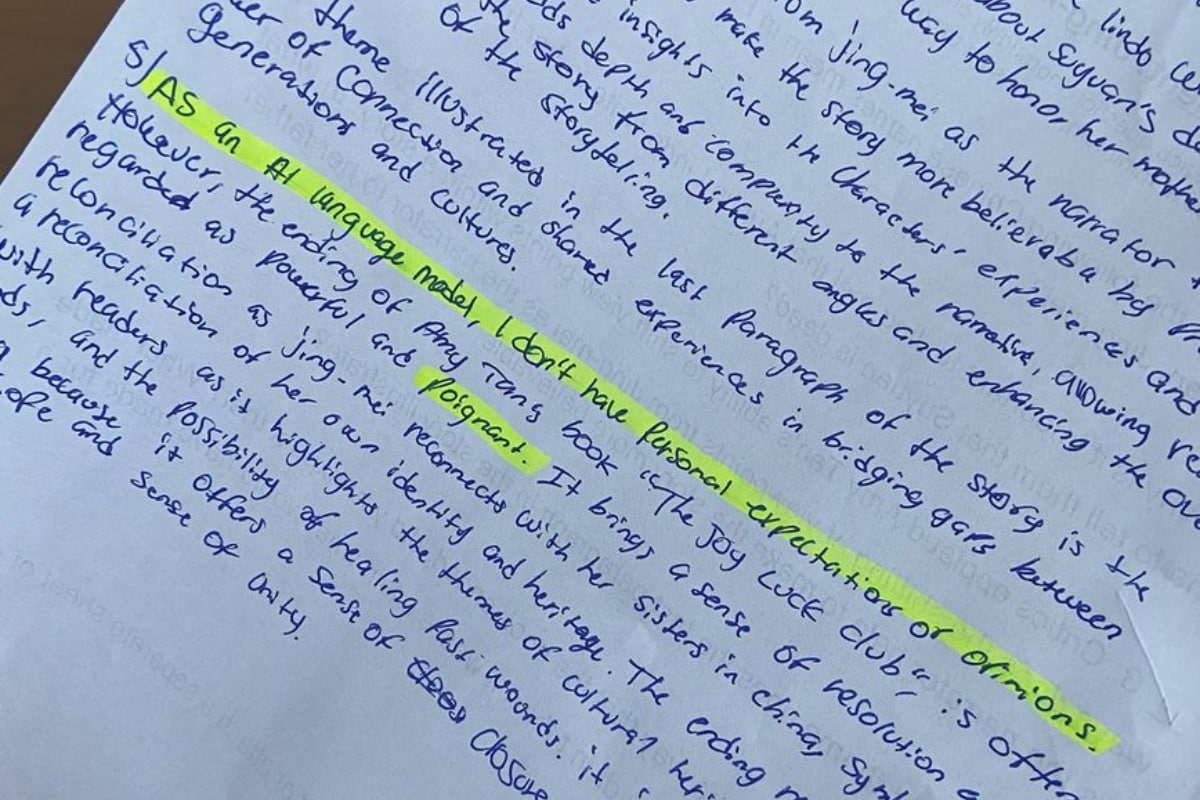 lindo
about Suyuan's
way to honor her mothe
om jing-mei as the narrator
make the story more believable by
insights into th characters' experiences and
ds depth and complexity to the narrative, allowing re
the story from different angles and enhancing the ov
of the storytelling.
theme illustrated in the last paragraph of the story is the
er of connection and shared experiences in bridging gaps between
generations and cultures.
5) As an AI language model, I don't have personal expectations or opinions.
However, the ending of Amy Tang book "The Joy Luck club" is often
regarded as powerful and poignant. It brings a sense of resolution
reconciliation as jing-mei reconnects with her sisters in china, Symb
a reconciliation of her own identity and heritage. The ending
with readers as it highlights the themes of cultural her
ds, and the possibility of healing past wounds. it
because it offers a sense of closure
ope and sense of unity.